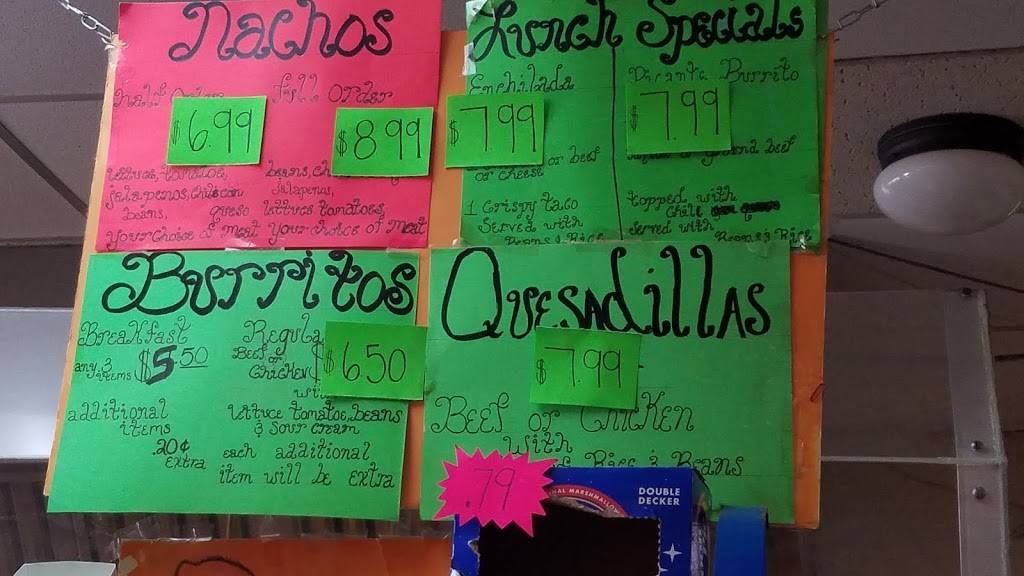 Nachos
Half
full Order
$6.99
$8.99
lettuce, tomatoe,
jalapenos, chili con
beans, queso
your choice of meat
beans,
Jalapenos,
lettuce tomatoes,
your choice of meat
Lunch Specials
Enchilada
$7.99
or beef
or cheese
1 Crispy taco
Served with
Beans & Rice
Picante Burrito
$7.99
beef
topped with
chile
served with
Beans & Rice
Burritos
Breakfast
any 3
items
$5.50
additional
items
.20¢
Extra
Regular
Beef or
Chicken
$6.50
with
lettuce tomatoe, beans
& sour cream
each additional
item will be Extra
Quesadillas
$7.99
Beef or Chicken
with
Rice & Beans
.79
MARSHMALLOW
DOUBLE
DECKER